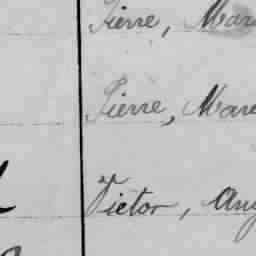 Pierre, Mar
Pierre, Mare
Victor, Aug